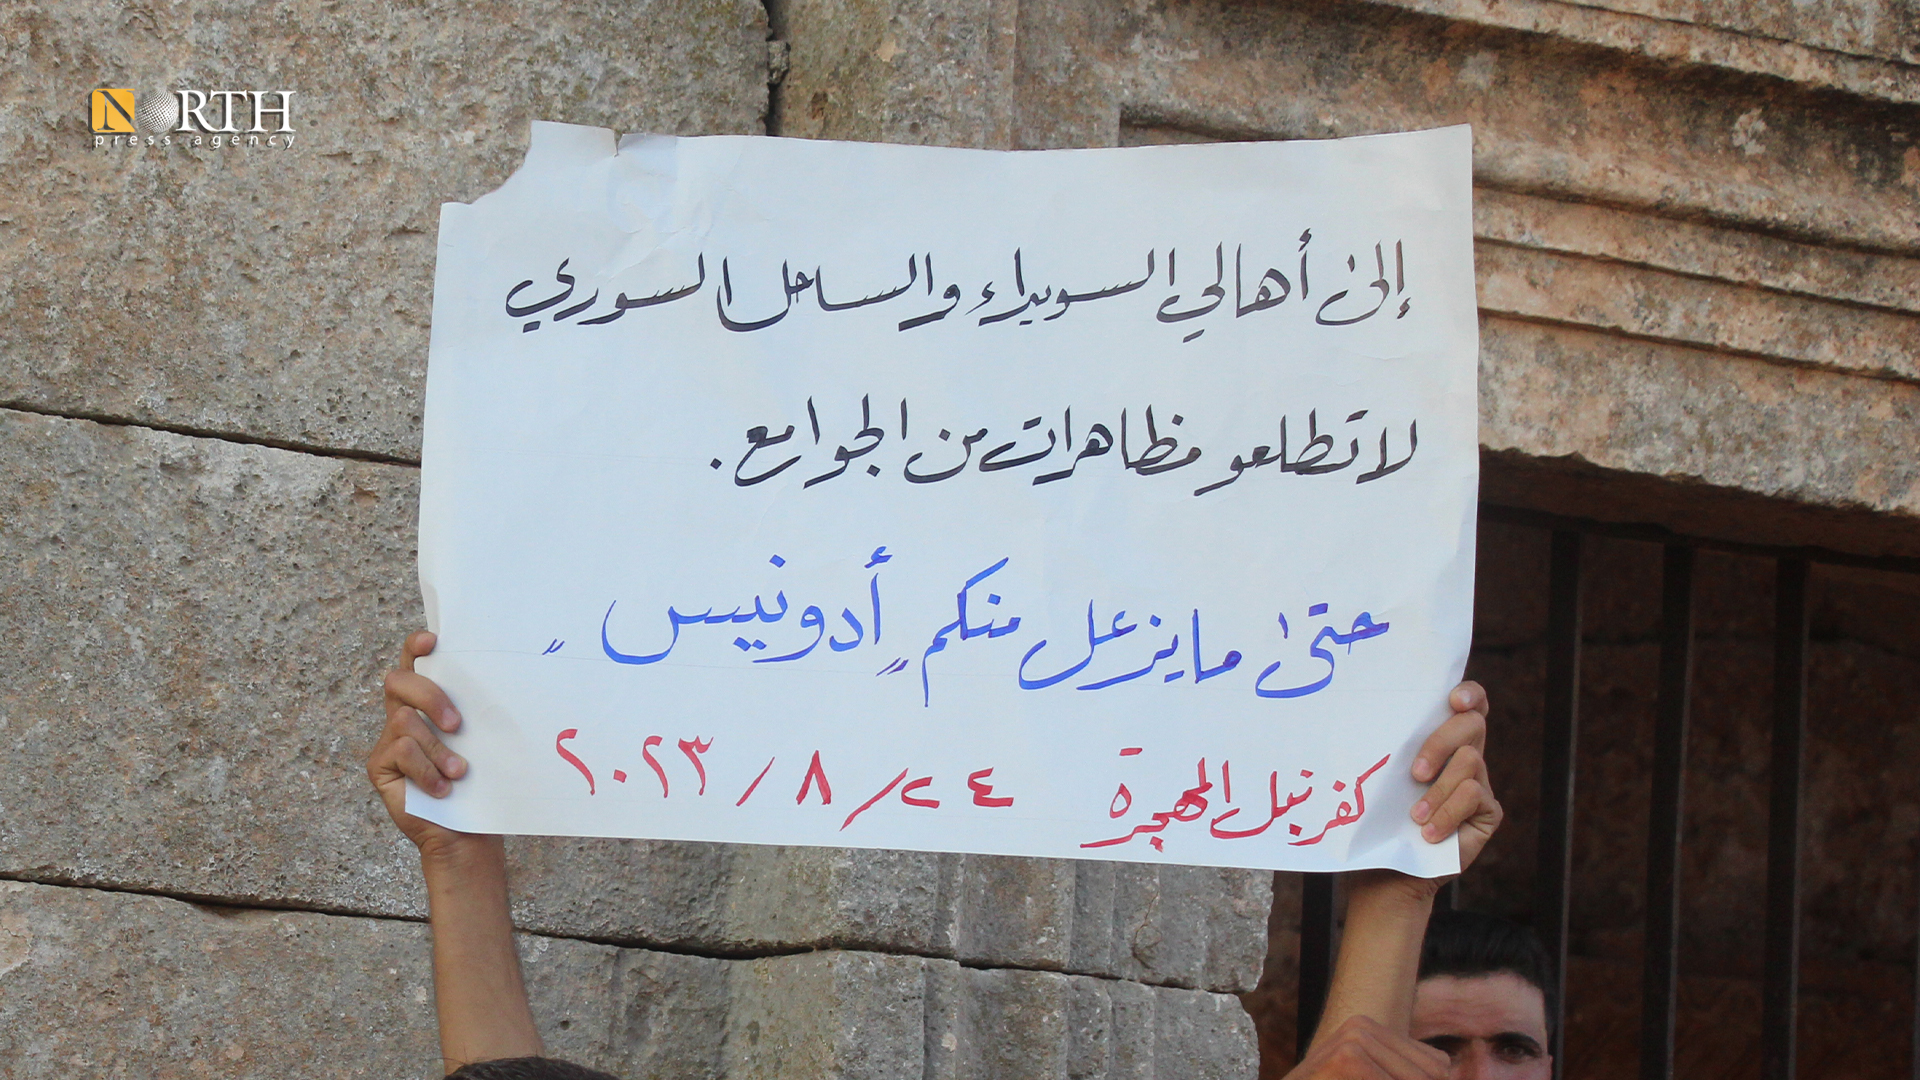 NORTH
press agency
إلى أهالي السويداء والساحل السوري
لا تطلعو مظاهرات من الجوامع.
حتى ما يزعل منكم "أدونيس"
كفرنبل المهجرة ٢٤/٨/٢٠٢٣